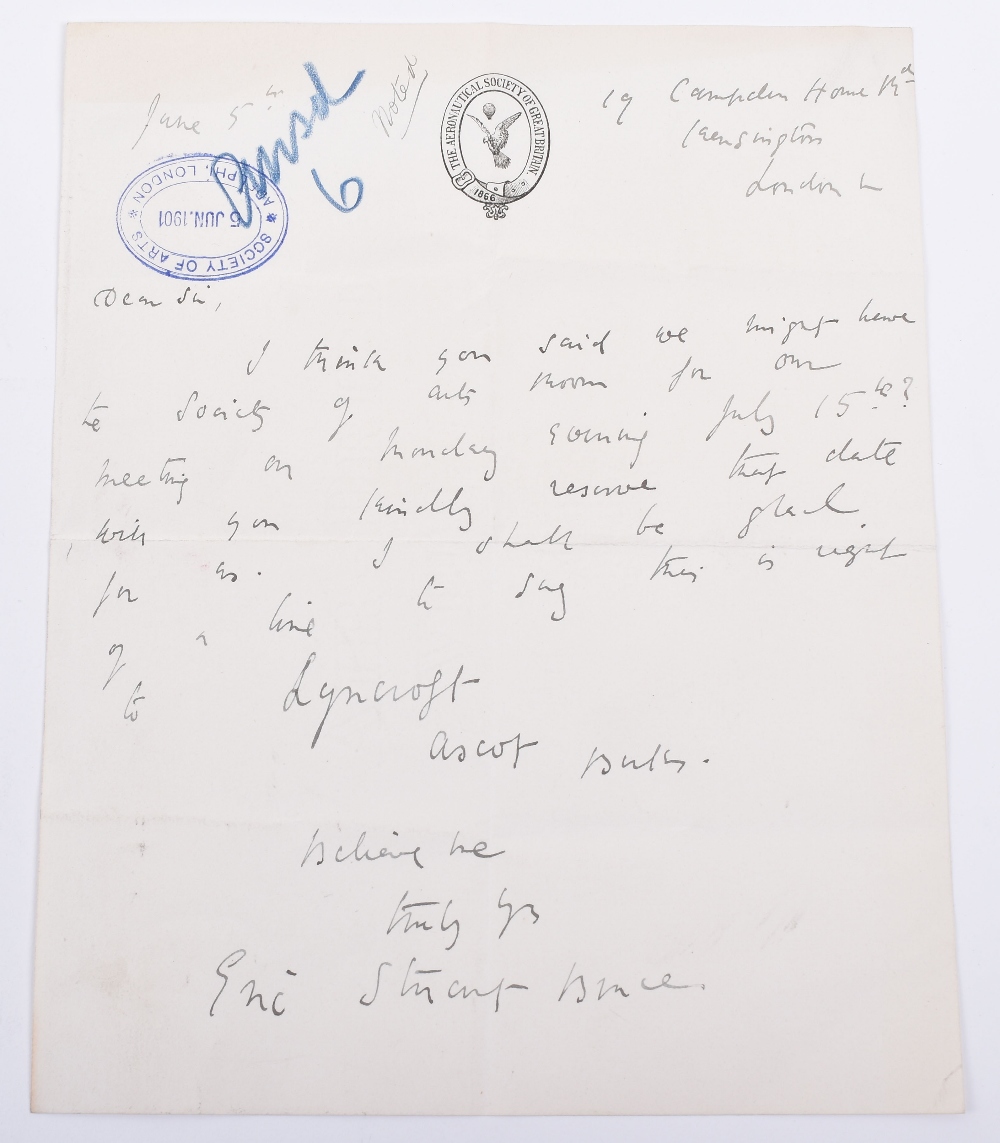 June 5th
Ansd
6
Noted
THE AERONAUTICAL SOCIETY OF GREAT BRITAIN
1866
19 Campden House Rd
Kensington
London W
SOCIETY OF ARTS * ADELPHI, LONDON *
5 JUN.1901
Dear Sir,
I think you said we might have
the Society of Arts Room for our
meeting on Monday evening July 15th?
Will you kindly reserve that date
for us. I shall be glad
of a line to say this is right
to Lyncroft
Ascot Berks.
Believe me
truly yrs
Eric Stuart Bruce.